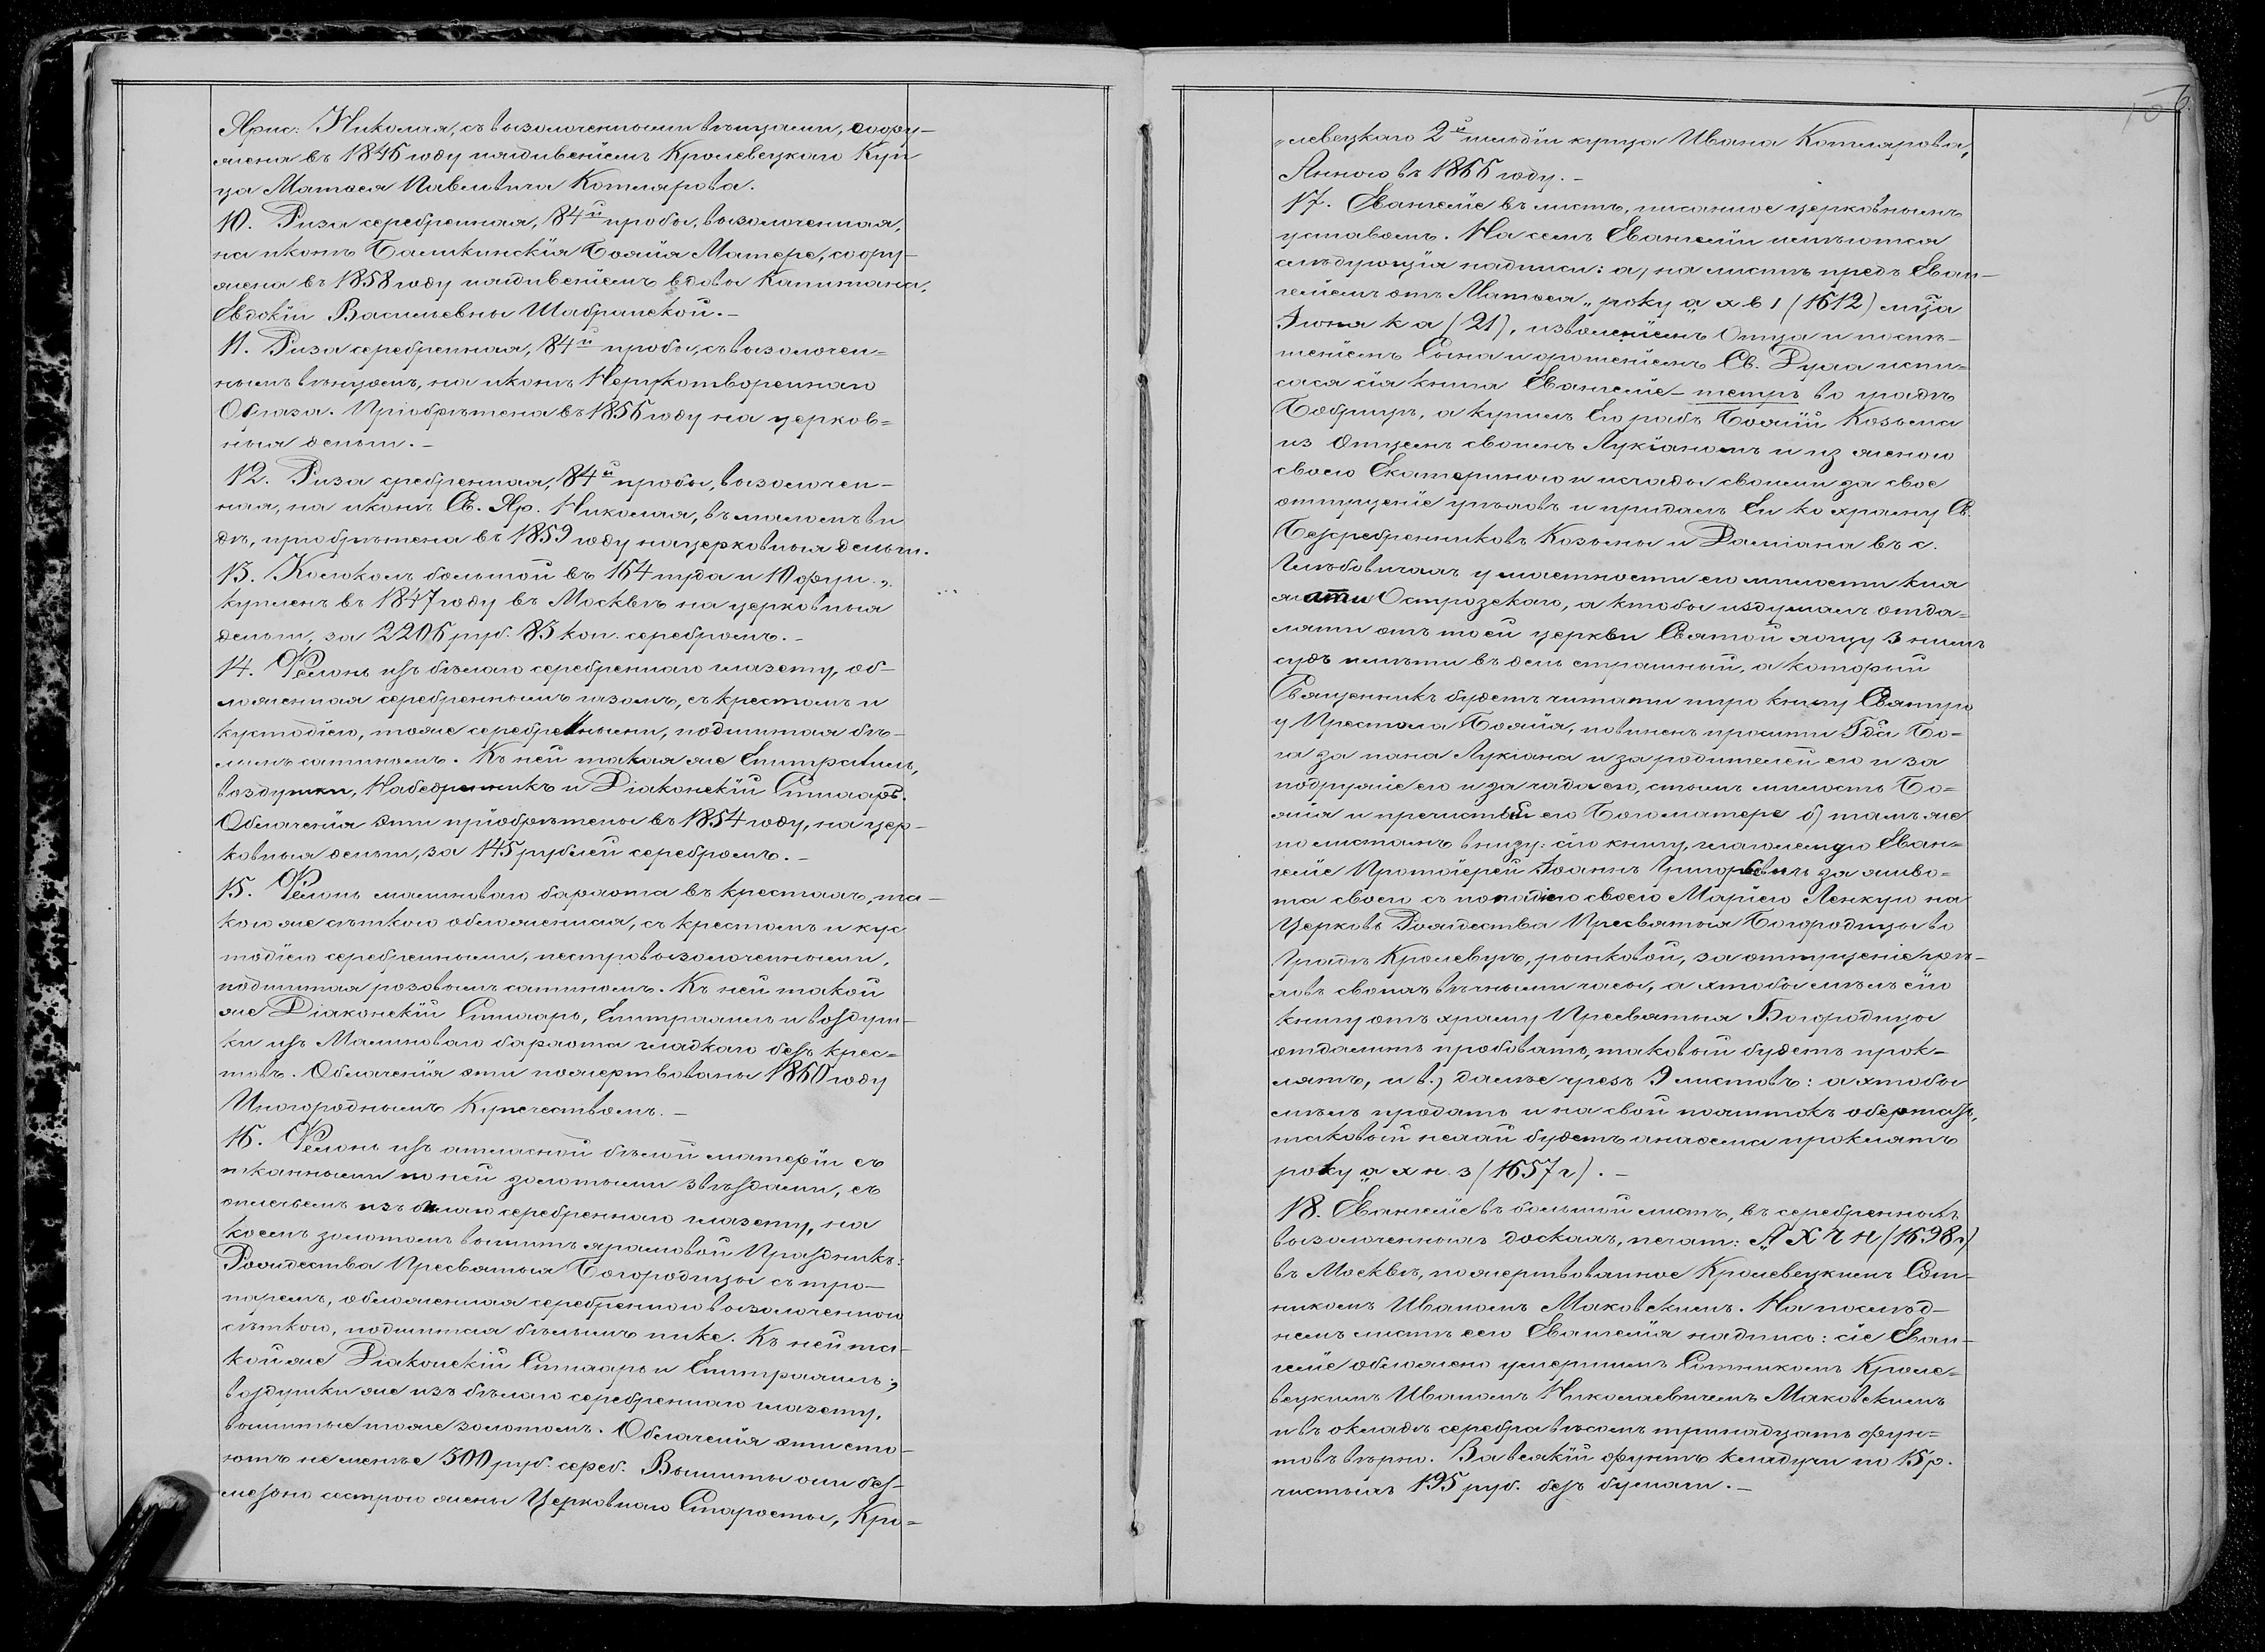 Архіс: Николая, съ вызолоченными вѣнцами, соору-
жена въ 1846 году иждивеніемъ Кролевецкаго Куп
ца Матѳея Павловича Котлярова.
10. Риза серебренная, 84й пробы, вызолоченная,
на иконѣ Балыкинскія Божія Матере, соору-
жена въ 1858 году иждивеніемъ вдовы Капитана,
Евдокіи Васильевны Шабранской.-
11. Риза серебренная, 84й пробы, съ вызолочен=
нымъ вѣнцемъ, на иконѣ Нерукотвореннаго
Образа. Пріобрѣтена въ 1856 году на церков=
ныя деньги.-
12. Риза сребренная, 84й пробы, вызолочен-
ная, на иконѣ Св. Яр. Николая, въ маломъ ви
дѣ, приобрѣтена въ 1859 году на церковныя деньги.
13. Колоколъ большой въ 164 пуда и 10 фун.,
купленъ въ 1847 году въ Москвѣ на церковныя
деньги, за 2206 руб. 83 коп. серебромъ.-
14. Фелонь изъ бѣлаго серебреннаго глазету, об-
ложенная серебреннымъ газомъ, съ крестомъ и
кустодіею, тоже серебренными, подшитая бѣ-
лымъ сатиномъ. Къ ней такая же Епитрахиль,
воздушки, Набедренникъ и Діаконскій Стихаръ.
Облаченія эти пріобрѣтены въ 1854 году, на цер-
ковныя деньги, за 145 рублей серебромъ.-
15. Фелонь малиноваго бархота въ крестахъ, та-
кою же сѣткою обложенная, съ крестомъ и кус
тодіею серебренными, пестровызолоченными,
подшитая розовымъ сатиномъ. Къ ней такой
же Діаконскій Стихарь, Епитрахиль и воздуш-
ки изъ Малиноваго бархота гладкаго безъ крес=
товъ. Облаченія эти пожертвованы 1860 году
Иногороднымъ Купечествомъ.-
16. Фелонь изъ атласной бѣлой матеріи съ
тканными по ней золотыми звѣздами, съ
оплечьемъ изъ бѣлаго серебреннаго глазету, на
коемъ золотомъ вышитъ храмовой Праздникъ:
Рождества Пресвятыя Богородицы съ тро-
паремъ, обложенная серебренною вызолоченною
сѣткою, подшитая бѣлымъ пике. Къ ней та-
кой же Діаконскій Стихарь и Епитрахиль;
воздушки же изъ бѣлаго серебреннаго глазету,
вышитые тоже золотомъ. Облаченія эти сто-
ютъ не менѣе 500 руб. сереб. Вышиты они без-
мездно сестрою жены Церковнаго Старосты, Кро=
6.
10
„левецкаго 2й гильдіи купца Ивана Котлярова,
Анною въ 1866 году.-
17. Евангеліе въ листъ, писанное церковнымъ
уставомъ. На семъ Евангеліи имѣются
слѣдующія надписи: а, на листѣ предъ Еван-
геліемъ отъ Матѳея „року ҂а х в і (1612) мца
Іюня к а (21), изволеніемъ Отца и поспѣ-
шеніемъ Сына и орошеніемъ Св. Духа испи-
сася сія книга Евангеліе - тетръ во градѣ
Бобрицѣ, а купилъ Ею рабъ Божій Козьма
из Отцемъ своимъ Лукіаномъ и из женою
своею Екатериною и исчады своими за свое
отпущеніе грѣховъ и придалъ Еи ко храму Св.
Безсребренниковъ Козьмы и Даміана въ с.
Глѣбовичахъ у маетности его милости кня
жати Острозскаго, а ктобы издумалъ отда-
ляти отъ тоеи церкви Святой хощу з нимъ
судъ имѣти въ день страшный, а который
Священникъ будетъ читати тую книгу Святую
у Престола Божія, повиненъ просити Гда Бо=
га за пана Лукіана и за родителей его и за
подружіе его и за чада его, стымъ милость Бо=
жія и пречистыя его Богоматере б) тамъ же
по листамъ внизу: сію книгу, глаголемую Еван=
геліе Протоіерей Іоаннъ Григоровичъ за живо=
та своего съ попадіею своею Маріею Ленкую на
Церковь Рождества Пресвятыя Богородицы во
Градѣ Кролевцѣ, рынковой, за отпущеніе грѣ-
ховъ своихъ вѣчными часы, а хтобы мѣлъ сію
книгу отъ храму Пресвятыя Богородицы
отдалить пробовать, таковый будетъ прок-
лятъ, и в., далѣе чрезъ 9 листовъ: а хтобы
мѣлъ продать и на свой пожитокъ обертать,
таковый нехай будетъ анаѳема проклятъ
року ҂а х н з (1657 г).-
18. Евангеліе въ большой листъ, въ серебренныхъ
вызолоченныхъ доскахъ, печат: ҂А Х Ч Н (1698 г)
въ Москвѣ, пожертвованное Кролевецкимъ Сот-
никомъ Иваномъ Маковскимъ. На послѣд-
немъ листѣ сего Евангелія надпись: сіе Еван-
геліе обложено умершимъ Сотникомъ Кроле=
вецкимъ Иваномъ Николаевичемъ Маковскимъ
и въ окладѣ серебра вѣсомъ тринадцать фун=
товъ вѣрно. За всякій фунтъ кладучи по 15 р.
чистыхъ 195 руб. безъ бумаги.-